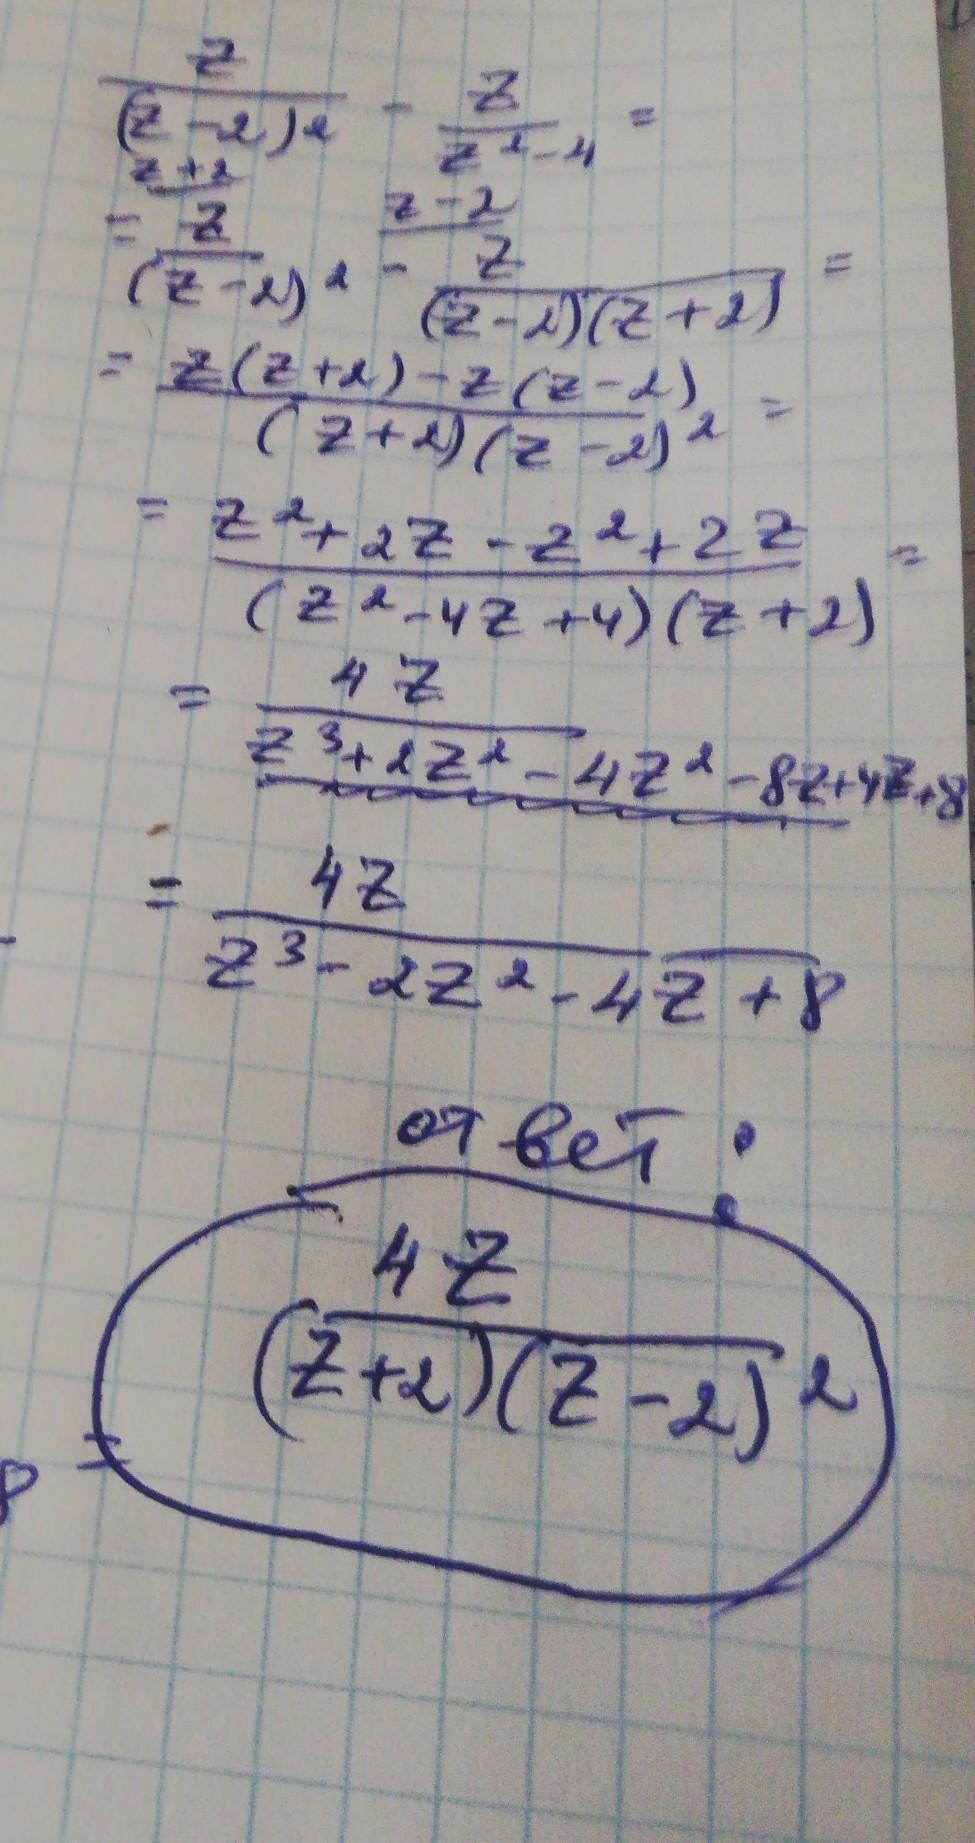 z/(z-2)² - z/(z²-4) =
z+2 z-2
= z/(z-2)² - z/((z-2)(z+2)) =
= (z(z+2)-z(z-2))/((z+2)(z-2)²) =
= (z²+2z-z²+2z)/((z²-4z+4)(z+2)) =
= 4z/(z³+2z²-4z²-8z+4z+8)
= 4z/(z³-2z²-4z+8)
ответ:
4z/((z+2)(z-2)²)
8 =